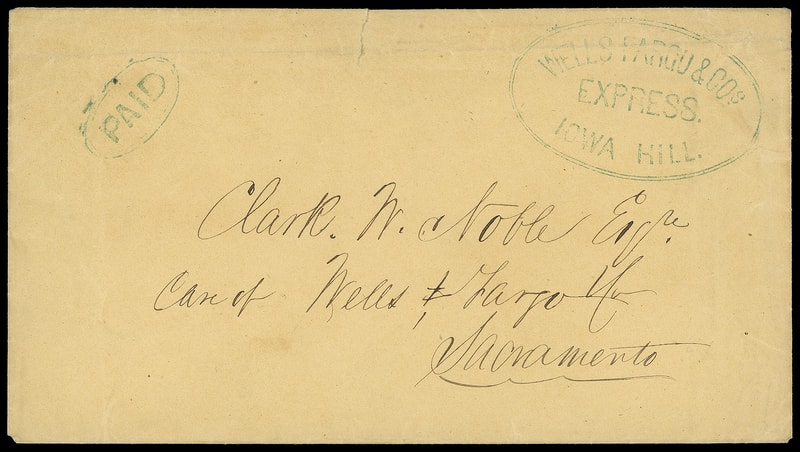 PAID
WELLS FARGO & COS.
EXPRESS.
IOWA HILL.
Clark. W. Noble Esqre.
Care of Wells & Fargo & Co
Sacramento